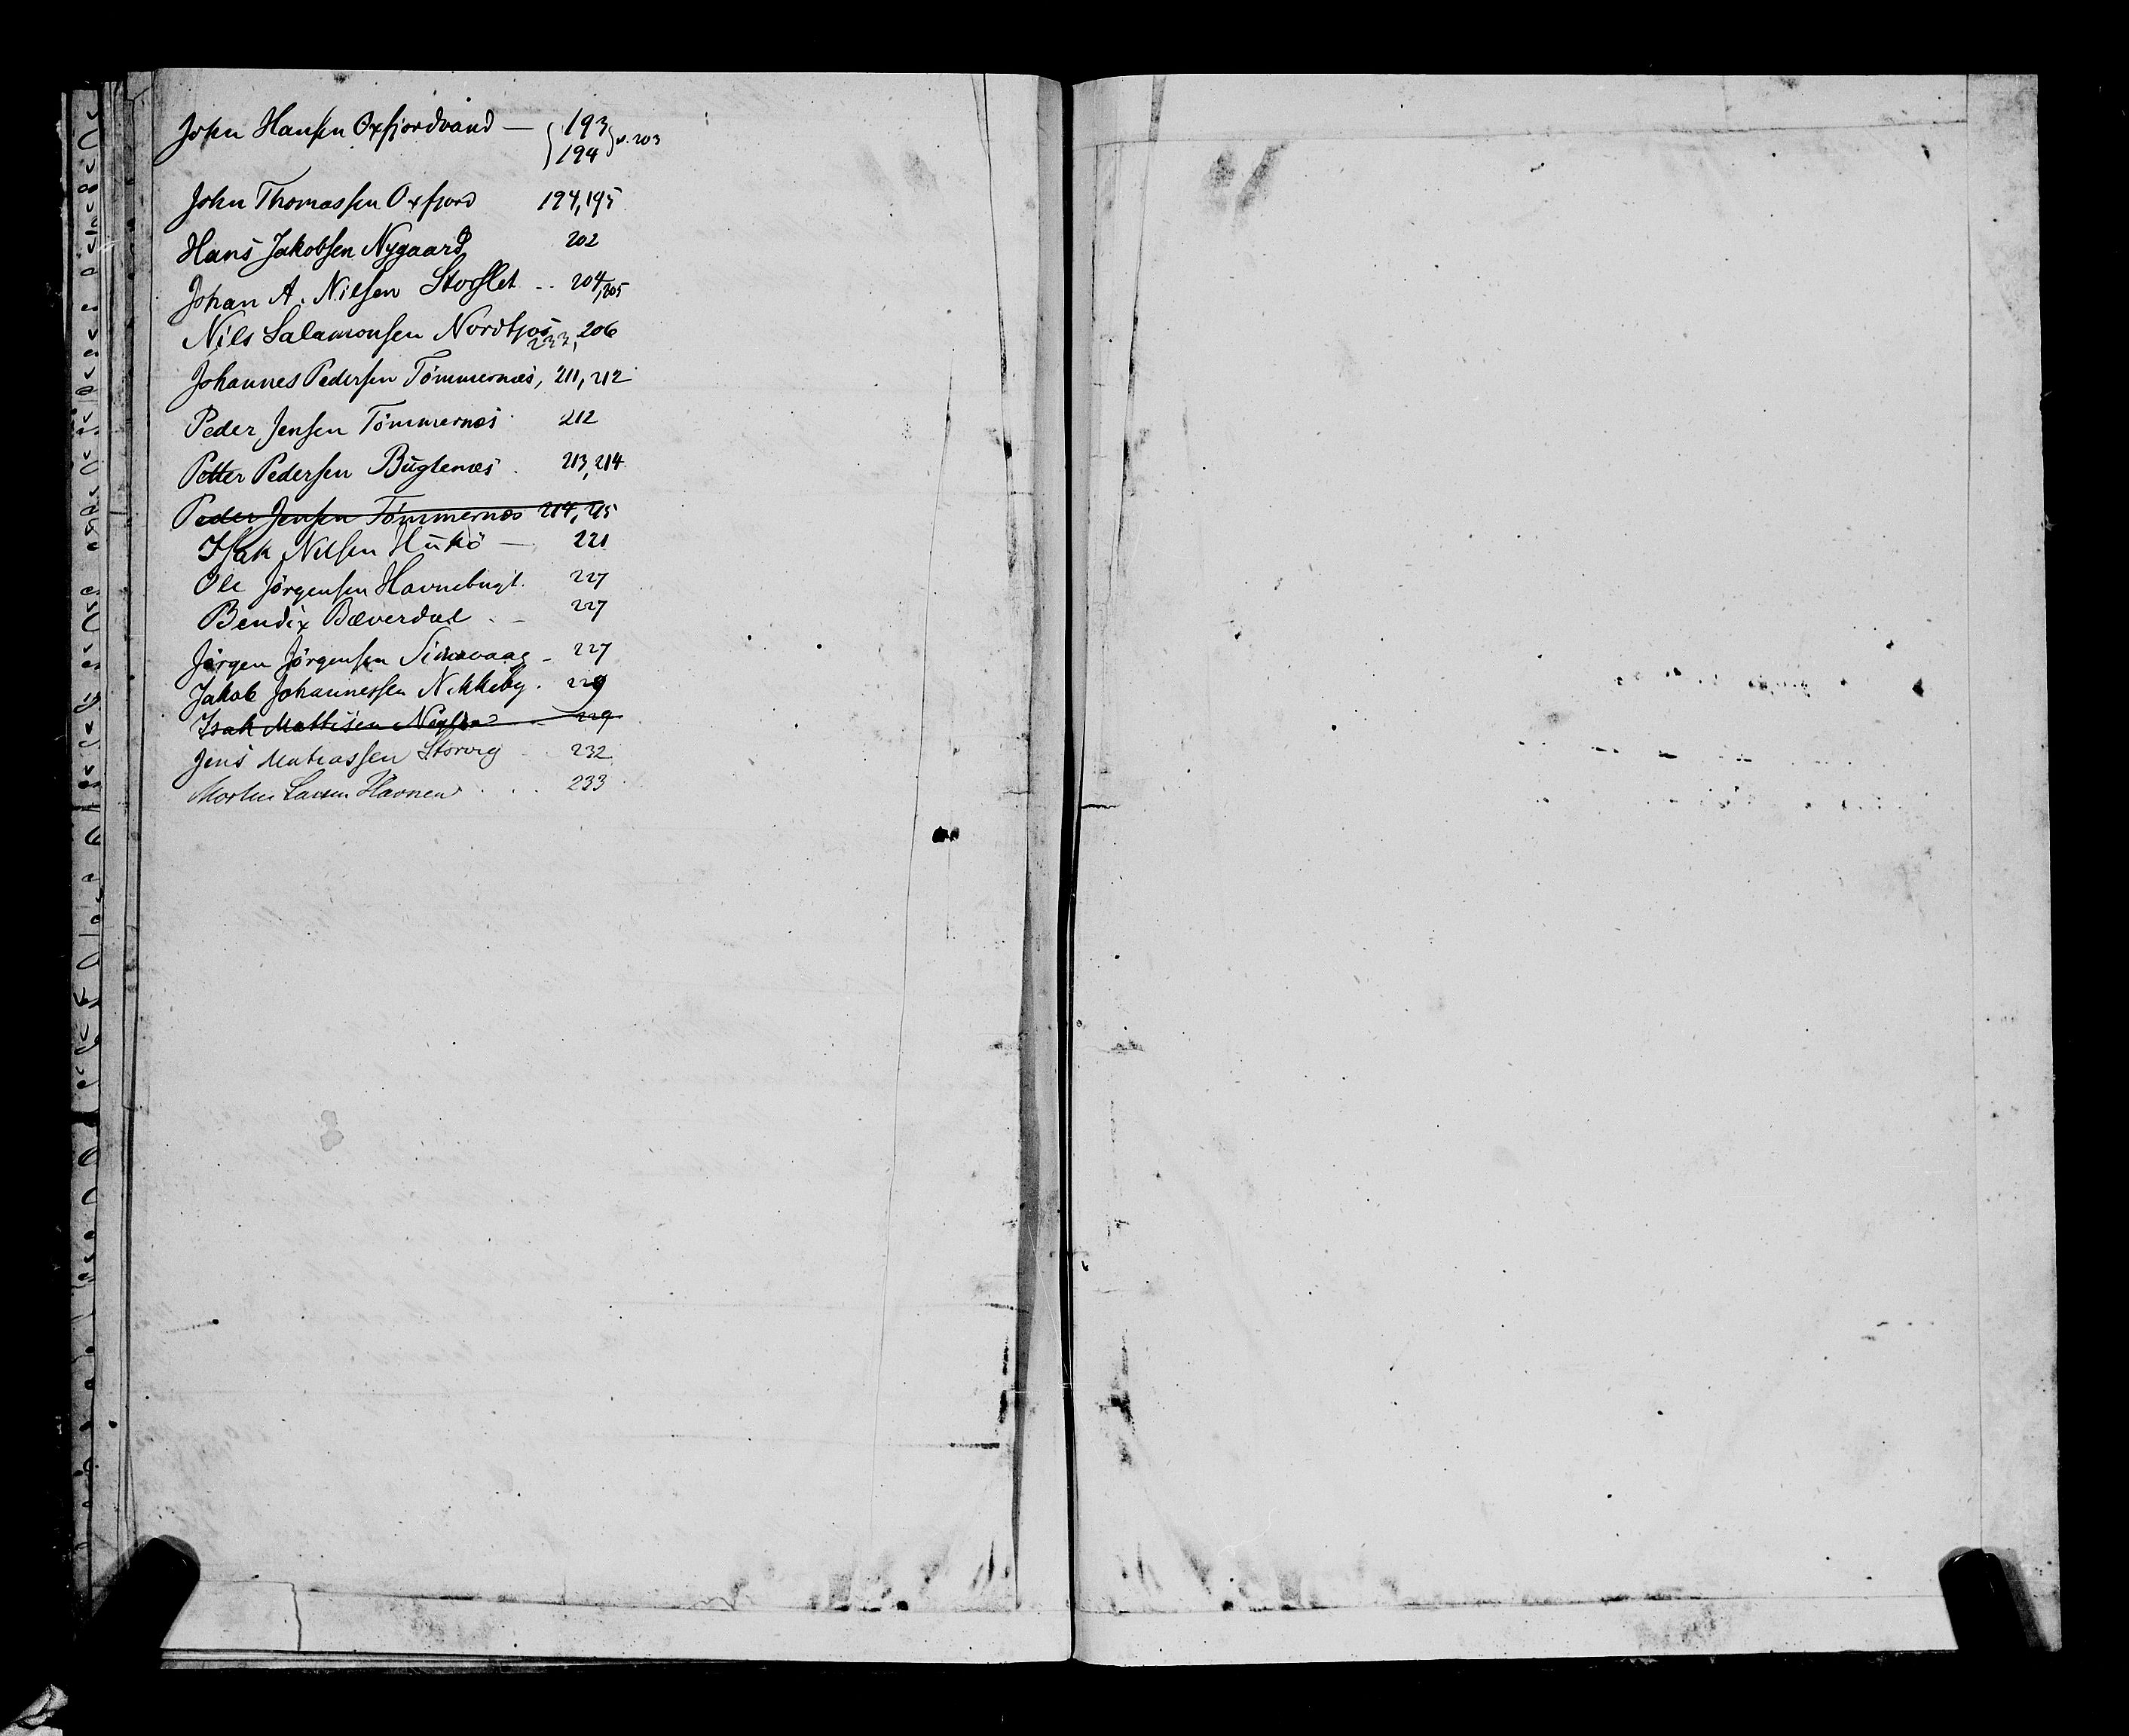 John Hansen Oxfjordvand — 193
194 o. 203
John Thomassen Oxfjord 194, 195
Hans Jakobsen Nygaard 202
Johan A. Nilsen Storslet .. 204, 205
Nils Salamonsen Nordkjos 233, 206
Johannes Pedersen Tömmernæs, 211, 212
Peder Jensen Tömmernæs 212
Petter Pedersen Bugtenæs . 213, 214
Peder Jensen Tömmernæs 214, 215
Isak Nilsen Hukö — 221
Ole Jörgensen Havnebugt. 227
Bendix Bæverdal . - 227
Jörgen Jörgensen - 227
Jakob Johannessen Nikkeby . 229
Isak Mattisen 229
Jens Matiassen Storvig 232
Morten Larsen Havnen . . . 233